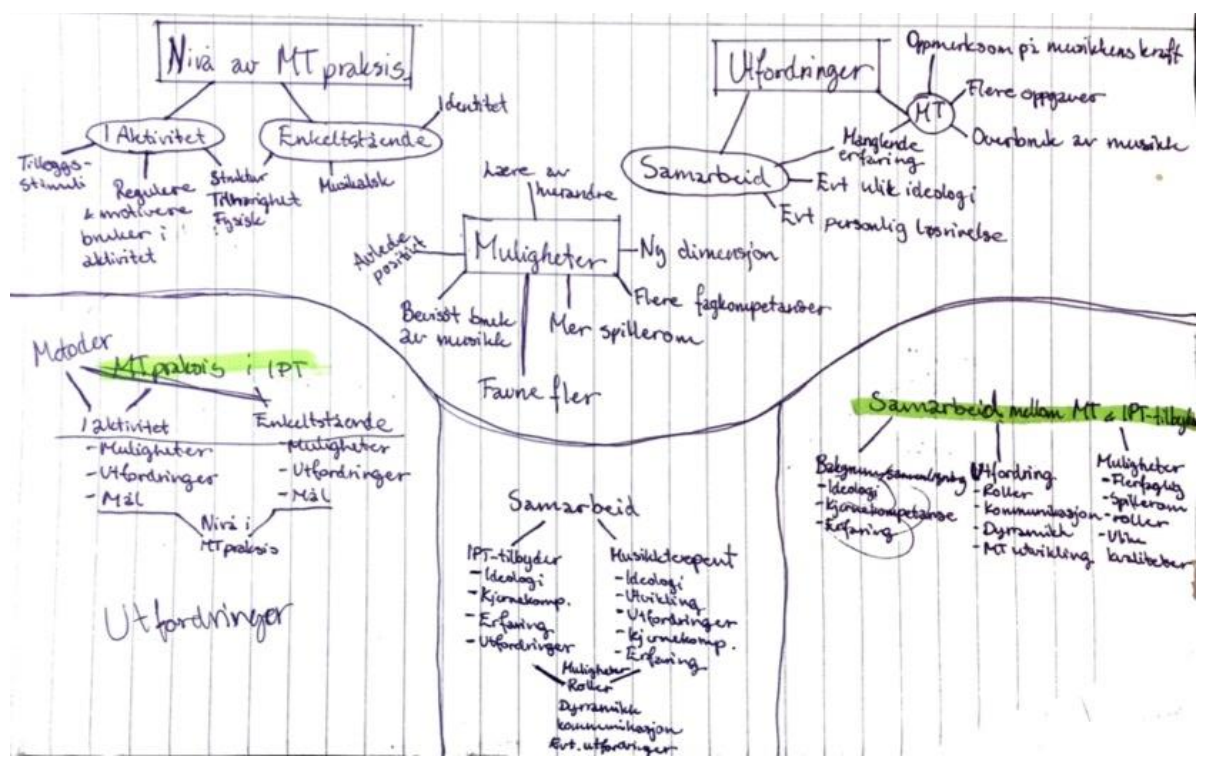 Nivå av MT praksis
I Aktivitet
Enkeltstående
Identitet
Tilleggs-
stimuli
Regulere
& motivere
bruker i
aktivitet
Struktur
Tilhørighet
Fysisk
Musikalsk
Utfordringer
MT
Oppmerksom på musikkens kraft
Flere oppgaver
Overbruk av musikk
Samarbeid
Manglende
erfaring
Evt ulik ideologi
Evt personlig løsrivelse
Muligheter
Lære av
hverandre
Avlede
positivt
Ny dimensjon
Flere fagkompetanser
Bevisst bruk
av musikk
Mer spillerom
Favne fler
Metoder
MT praksis i IPT
I aktivitet
- Muligheter
- Utfordringer
- Mål
Enkeltstående
- Muligheter
- Utfordringer
- Mål
Nivå i
MT praksis
Utfordringer
Samarbeid
IPT-tilbyder
- Ideologi
- Kjernekomp.
- Erfaring
- Utfordringer
Musikkterapeut
- Ideologi
- Utvikling
- Utfordringer
- kjernekomp.
- Erfaring
Muligheter
Roller
Dynamikk
kommunikasjon
Evt. utfordringer
Samarbeid mellom MT & IPT-tilbyder
- Ideologi
- Kjernekompetanse
- Erfaring
Utfordring
- Roller
- Kommunikasjon
- Dynamikk
- MT utvikling
Muligheter
- Flerfaglig
- Spillerom
- roller
- Ulike
kvaliteter